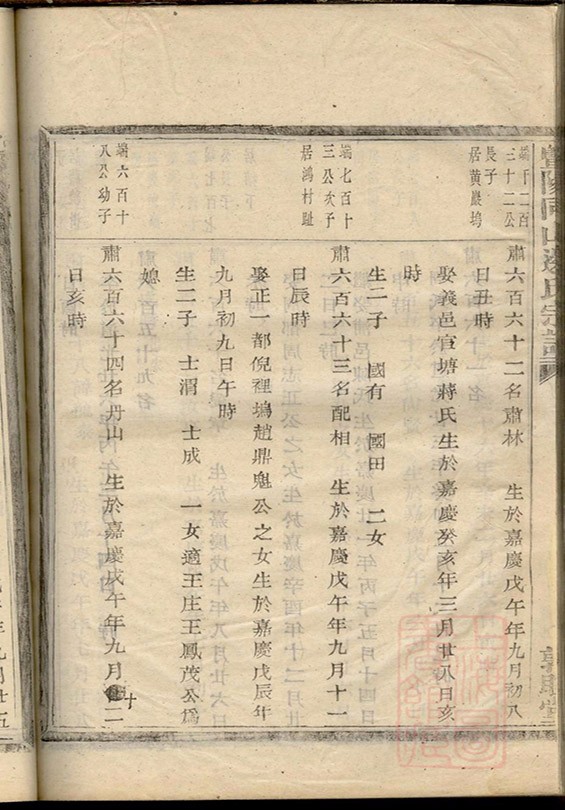 端千二百
三十二公
長子
居黄巖塢
肅六百六十二名肅林　生於嘉慶戊午年九月初八
日丑時
娶義邑官塘蔣氏生於嘉慶癸亥年三月廿八日亥
時
生二子　國有　國田　二女
端七百十
三公次子
居鴻村趾
肅六百六十三名配相　生於嘉慶戊午年九月十一
日辰時
娶正一都倪裡塢趙鼎魁公之女生於嘉慶戊辰年
九月初九日午時
生二子　士渭　士成　一女適王庄王鳳茂公爲
媳
端六百十
八公幼子
肅六百六十四名丹山　生於嘉慶戊午年九月十二
日亥時